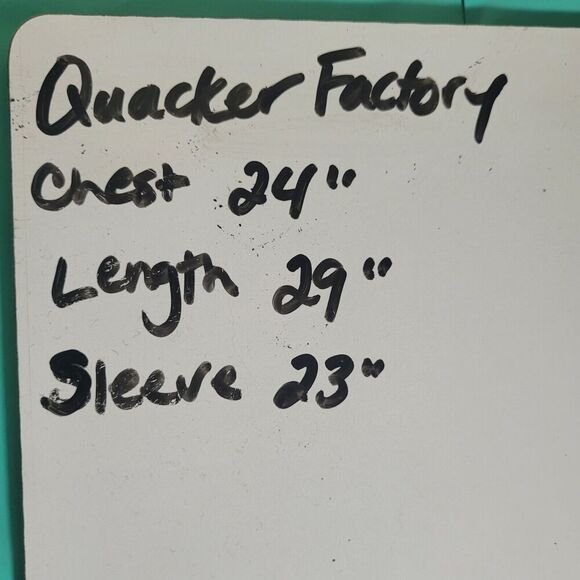 Quacker Factory
Chest 24"
Length 29"
Sleeve 23"